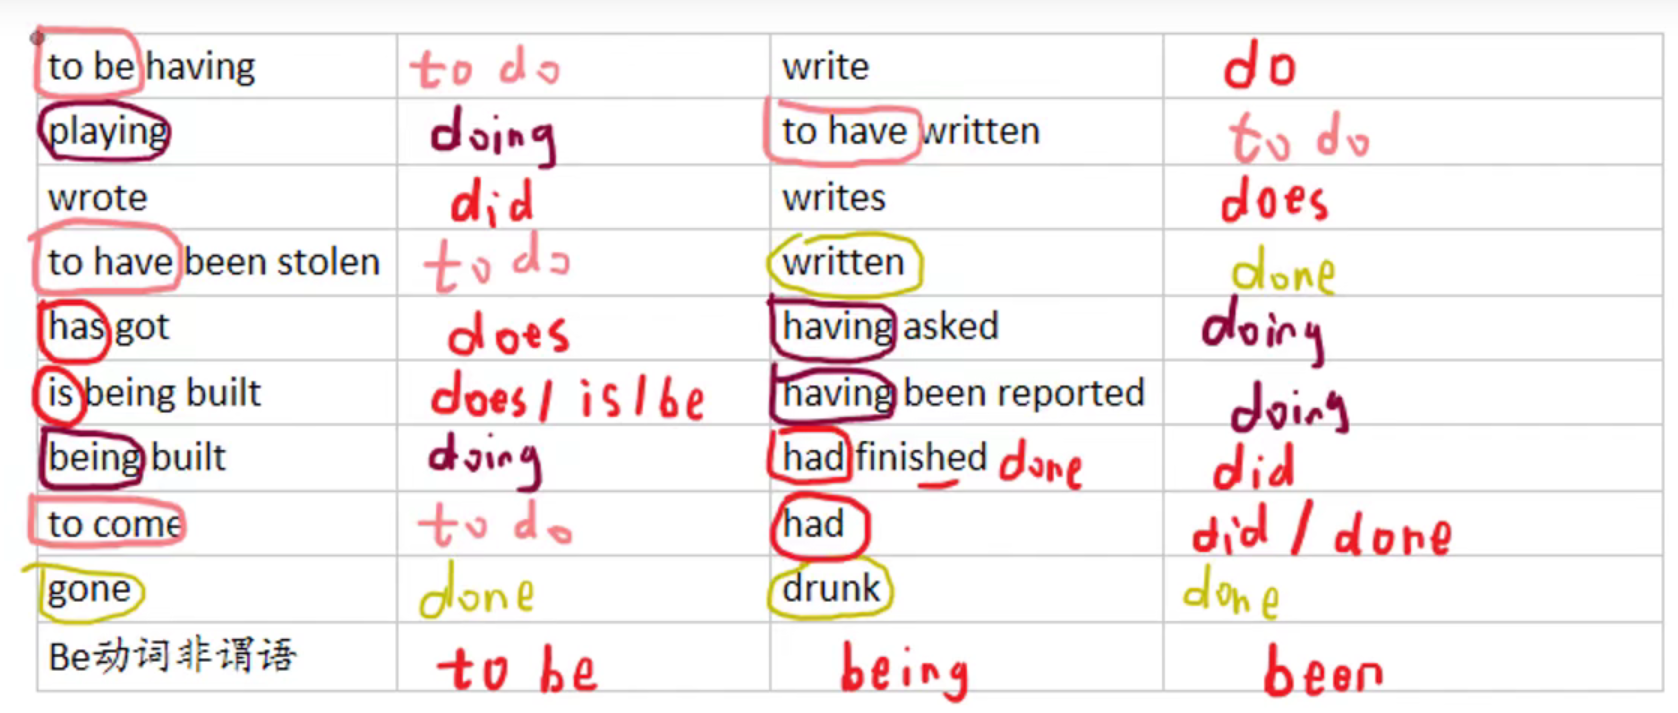 to be having to do write do
playing doing to have written to do
wrote did writes does
to have been stolen to do written done
has got does having asked doing
is being built does / is / be having been reported doing
being built doing had finished done did
to come to do had did / done
gone done drunk done
Be动词非谓语 to be being been